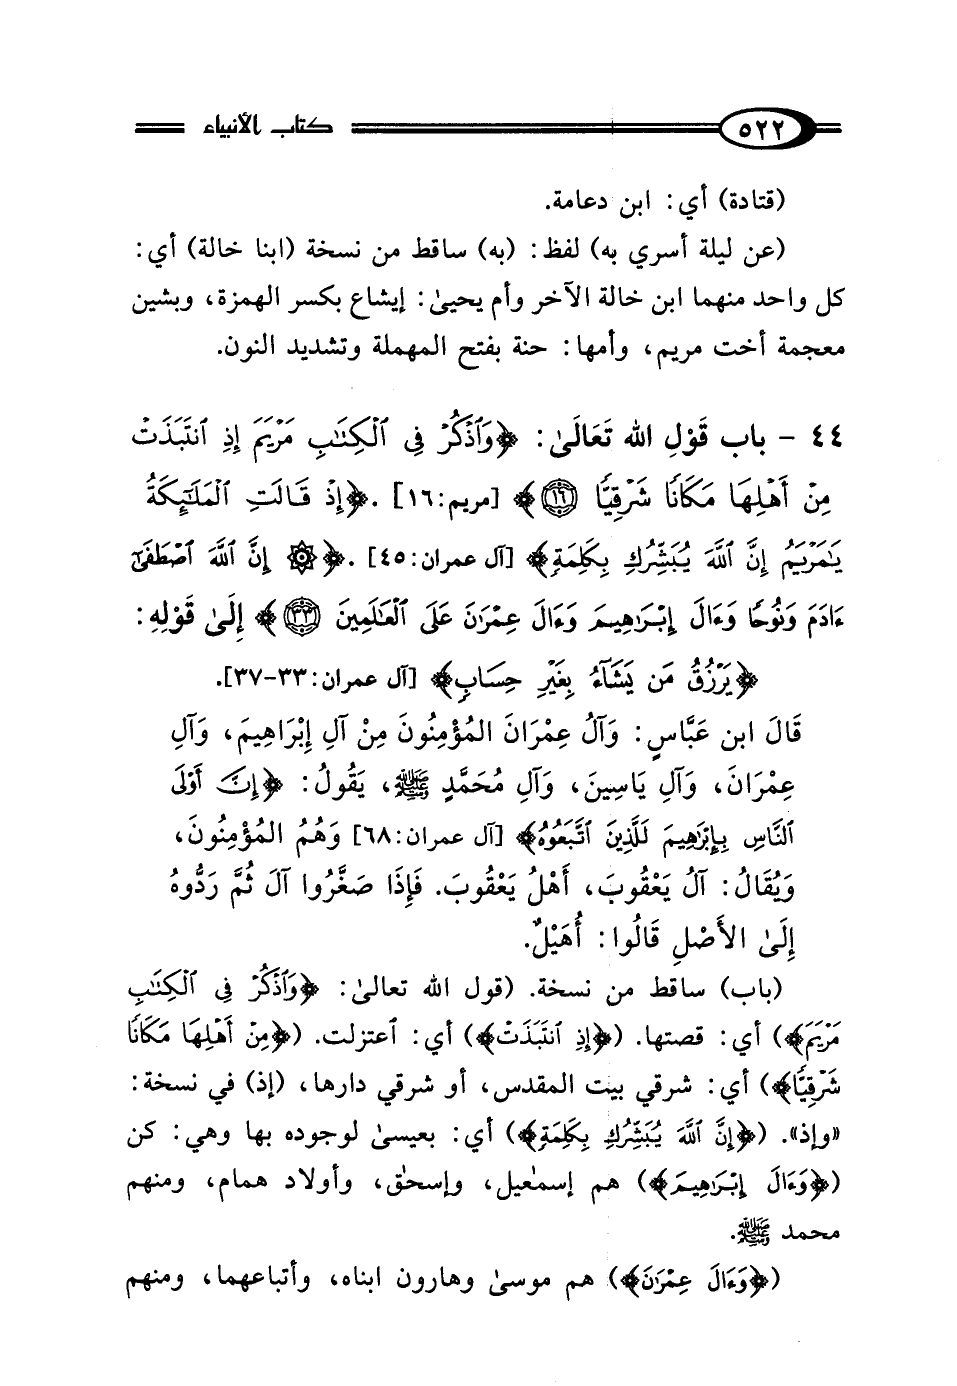 ٥٢٢ كتاب الأنبياء
(قتادة) أي: ابن دعامة.
(عن ليلة أسري به) لفظ: (به) ساقط من نسخة (ابنا خالة) أي:
كل واحد منهما ابن خالة الآخر وأم يحيىٰ: إيشاع بكسر الهمزة، وبشين
معجمة أخت مريم، وأمها: حنة بفتح المهملة وتشديد النون.
٤٤ - باب قَوْلِ الله تَعَالَىٰ: ﴿وَٱذْكُرْ فِي ٱلْكِتَٰبِ مَرْيَمَ إِذِ ٱنتَبَذَتْ
مِنْ أَهْلِهَا مَكَانًا شَرْقِيًّا ١٦﴾ [مريم:١٦]. ﴿إِذْ قَالَتِ ٱلْمَلَٰٓئِكَةُ
يَٰمَرْيَمُ إِنَّ ٱللَّهَ يُبَشِّرُكِ بِكَلِمَةٍ﴾ [آل عمران:٤٥]. ﴿۞ إِنَّ ٱللَّهَ ٱصْطَفَىٰٓ
ءَادَمَ وَنُوحًا وَءَالَ إِبْرَٰهِيمَ وَءَالَ عِمْرَٰنَ عَلَى ٱلْعَٰلَمِينَ ٣٣﴾ إِلَىٰ قَوْلِهِ:
﴿يَرْزُقُ مَن يَشَآءُ بِغَيْرِ حِسَابٍ﴾ [آل عمران:٣٣-٣٧].
قَالَ ابن عَبَّاسٍ: وَآلُ عِمْرَانَ المُؤْمِنُونَ مِنْ آلِ إِبْرَاهِيمَ، وَآلِ
عِمْرَانَ، وَآلِ يَاسِينَ، وَآلِ مُحَمَّدٍ ﷺ، يَقُولُ: ﴿إِنَّ أَوْلَى
ٱلنَّاسِ بِإِبْرَٰهِيمَ لَلَّذِينَ ٱتَّبَعُوهُ﴾ [آل عمران:٦٨] وَهُمُ المُؤْمِنُونَ،
وَيُقَالُ: آلُ يَعْقُوبَ، أَهْلُ يَعْقُوبَ. فَإِذَا صَغَّرُوا آلَ ثُمَّ رَدُّوهُ
إِلَىٰ الأَصْلِ قَالُوا: أُهَيْلٌ.
(باب) ساقط من نسخة. (قول الله تعالىٰ: ﴿وَٱذْكُرْ فِي ٱلْكِتَٰبِ
مَرْيَمَ﴾) أي: قصتها. (﴿إِذِ ٱنتَبَذَتْ﴾) أي: أعتزلت. (﴿مِنْ أَهْلِهَا مَكَانًا
شَرْقِيًّا﴾) أي: شرقي بيت المقدس، أو شرقي دارها، (إذ) في نسخة:
«وإذ». (﴿إِنَّ ٱللَّهَ يُبَشِّرُكِ بِكَلِمَةٍ﴾) أي: بعيسىٰ لوجوده بها وهي: كن
(﴿وَءَالَ إِبْرَٰهِيمَ﴾) هم إسمٰعيل، وإسحٰق، وأولاد همام، ومنهم
محمد ﷺ.
(﴿وَءَالَ عِمْرَٰنَ﴾) هم موسىٰ وهارون ابناه، وأتباعهما، ومنهم